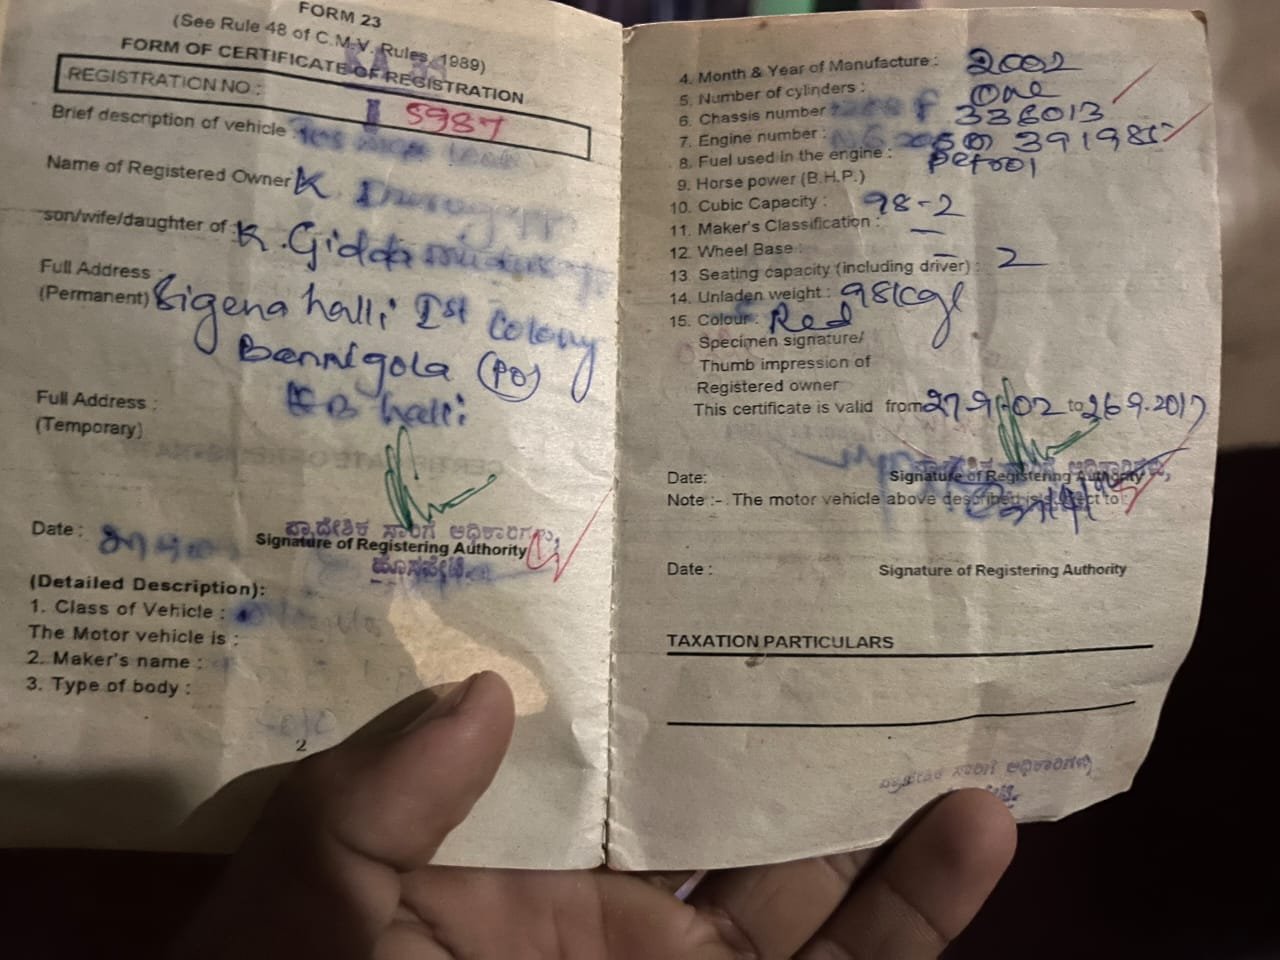 FORM 23
(See Rule 48 of C.M.V. Rules, 1989)
FORM OF CERTIFICATE OF REGISTRATION
REGISTRATION NO.:
5987
Brief description of vehicle
Name of Registered Owner K
son/wife/daughter of : K. Gidda
Full Address :
(Permanent) Sigenahalli Ist colony
Bannigola (PO)
halli
Full Address :
(Temporary)
Date :
ಪ್ರಾದೇಶಿಕ ಸಾರಿಗೆ ಅಧಿಕಾರಿಗಳು,
Signature of Registering Authority
ಹೊಸಪೇಟೆ.
(Detailed Description):
1. Class of Vehicle :
The Motor vehicle is :
2. Maker's name :
3. Type of body :
2
4. Month & Year of Manufacture : 2002
5. Number of cylinders : One
6. Chassis number F 338013
7. Engine number : 391985
8. Fuel used in the engine : Petrol
9. Horse power (B.H.P.)
10. Cubic Capacity : 98-2
11. Maker's Classification : —
12. Wheel Base : —
13. Seating capacity (including driver) : 2
14. Unladen weight : 98kgs
15. Colour : Red
Specimen signature/
Thumb impression of
Registered owner
This certificate is valid from 27-9-02 to 26.9.2017
Date:
ಪ್ರಾದೇಶಿಕ ಸಾರಿಗೆ ಅಧಿಕಾರಿಗಳು,
Signature of Registering Authority
Note :- The motor vehicle above described is subject to :
Date :
Signature of Registering Authority
TAXATION PARTICULARS
ಪ್ರಾದೇಶಿಕ ಸಾರಿಗೆ ಅಧಿಕಾರಿಗಳು